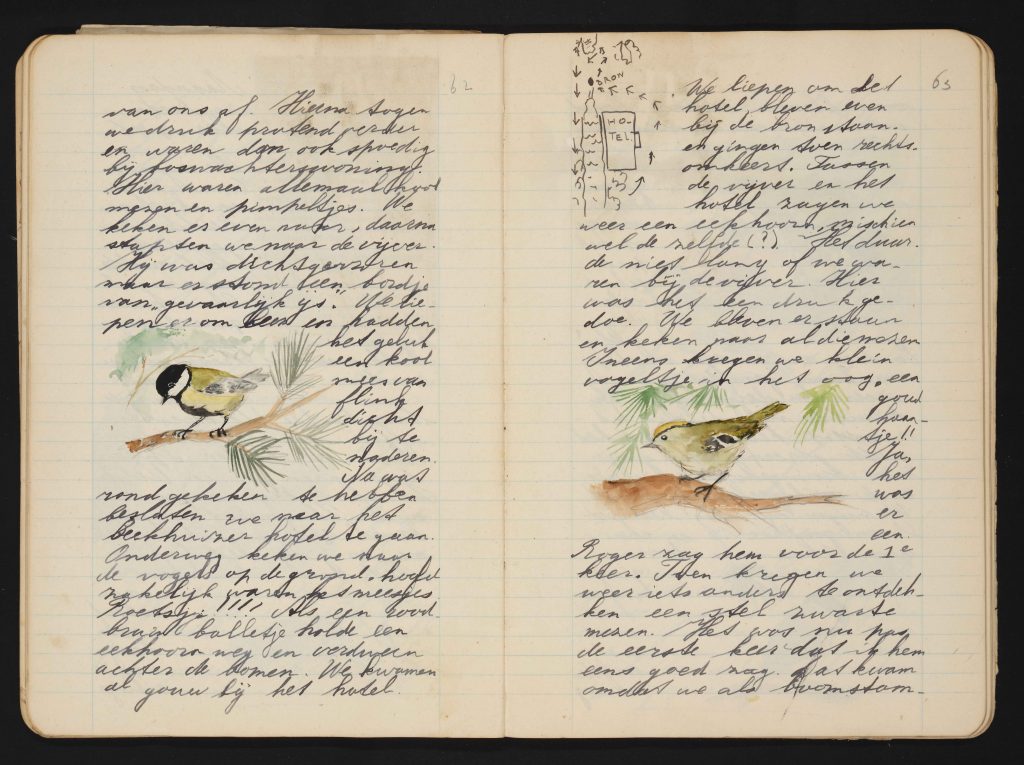 62
van ons af. Hierna togen
we druk pratend verder
en waren dan ook spoedig
bij boswachterswoning.
Hier waren allemaal kool
mezen en pimpeltjes. We
keken er even naar, daarna
stapten we naar de vijver.
Hij was dichtgevroren
maar er stond een bordje
van "gevaarlijk ijs". We lie-
pen er om heen en hadden
het geluk
een kool
mees van
flink
dicht
bij te
naderen.
Na wat
rond gekeken te hebben
besloten we naar het
Beekhuizer hotel te gaan.
Onderweg keken we naar
de vogels op de grond. hoofd
zakelijk waren het meesjes
Roetsji!!!! Als een rood
bruin balletje holde een
eekhoorn weg en verdween
achter de bomen. We kwamen
al gauw bij het hotel.
63
BRON
HO-
TEL
We liepen om het
hotel bleven even
bij de bron staan
en gingen toen rechts-
omkeert. Tussen
de vijver en het
hotel zagen we
weer een eekhoorn, misschien
wel de zelfde (?) Het duur-
de niet lang of we wa-
ren bij de vijver. Hier
was het een druk ge-
doe. We bleven er staan
en keken naar al die mezen
Ineens kregen we klein
vogeltje in het oog, een
goud
haan-
tje!!
Ja,
het
was
er
een.
Roger zag hem voor de 1e
keer. Toen kregen we
weer iets anders te ontdek-
ken een stel zwarte
mezen. Het was nu pas
de eerste keer dat ik hem
eens goed zag. Dat kwam
omdat we als boomstam-